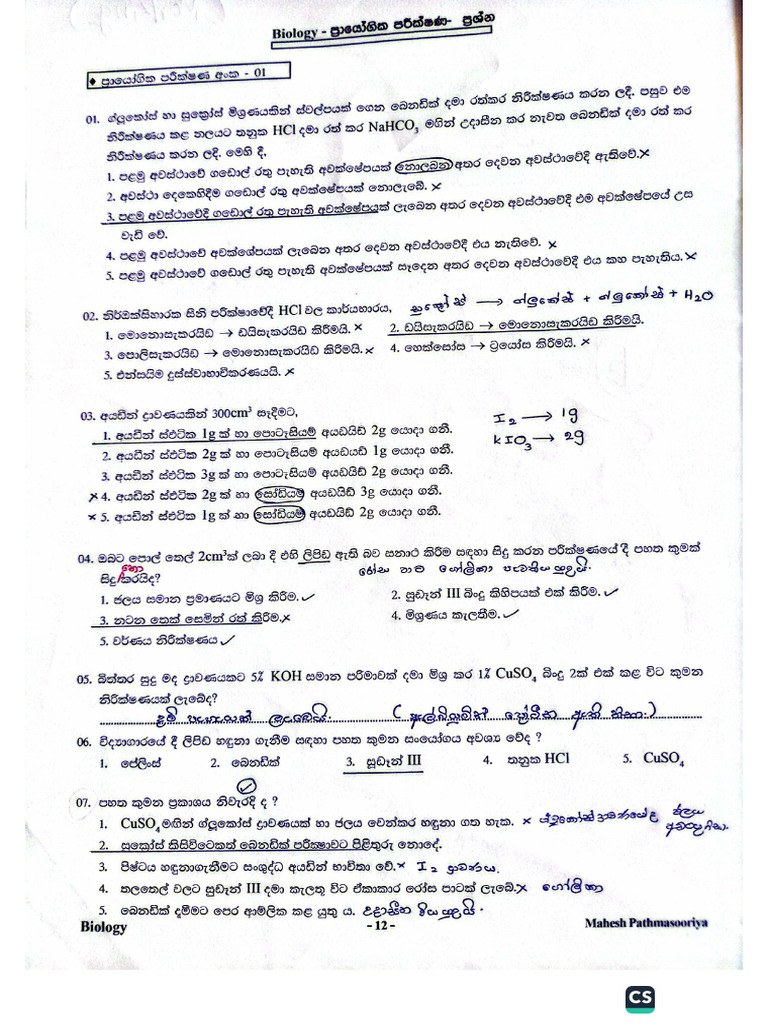 Biology - ප්‍රායෝගික පරීක්ෂණ- ප්‍රශ්න
♦ ප්‍රායෝගික පරීක්ෂණ අංක - 01
01. ග්ලූකෝස් හා සුක්‍රෝස් මිශ්‍රණයකින් ස්වල්පයක් ගෙන බෙනඩික් දමා රත්කර නිරීක්ෂණය කරන ලදී. පසුව එම
නිරීක්ෂණය කළ නලයට තනුක HCl දමා රත් කර NaHCO3 මගින් උදාසීන කර නැවත බෙනඩික් දමා රත් කර
නිරීක්ෂණය කරන ලදි. මෙහි දී,
1. පළමු අවස්ථාවේදී ගඩොල් රතු පැහැති අවක්ෂේපයක් නොලබන අතර දෙවන අවස්ථාවේදී ඇතිවේ. x
2. අවස්ථා දෙකෙහිදීම ගඩොල් රතු අවක්ෂේපයක් නොලැබේ. x
3. පළමු අවස්ථාවේදී ගඩොල් රතු පැහැති අවක්ෂේපයක් ලැබෙන අතර දෙවන අවස්ථාවේදී එම අවක්ෂේපයේ උස
වැඩි වේ.
4. පළමු අවස්ථාවේ අවක්ශේපයක් ලැබෙන අතර දෙවන අවස්ථාවේදී එය නැතිවේ. x
5. පළමු අවස්ථාවේදී ගඩොල් රතු පැහැති අවක්ෂේපයක් සෑදෙන අතර දෙවන අවස්ථාවේදී එය කහ පැහැතිය. x
02. නිර්ඔක්සිහාරක සීනි පරීක්ෂාවේදී HCl වල කාර්යභාරය, සුක්‍රෝස් → ග්ලූකෝස් + ග්ලූකෝස් + H2O
1. මොනොසැකරයිඩ → ඩයිසැකරයිඩ කිරීමයි. x 2. ඩයිසැකරයිඩ → මොනොසැකරයිඩ කිරීමයි.
3. පොලිසැකරයිඩ → මොනොසැකරයිඩ කිරීමයි. x 4. හෙක්සෝස → ට්‍රයෝස කිරීමයි. x
5. එන්සයිම දුස්ස්වාභාවිකරණයයි. x
03. අයඩින් ද්‍රාවණයකින් 300cm3 සෑදීමට, I2 → 1g
1. අයඩින් ස්ඵටික 1g ක් හා පොටෑසියම් අයඩයිඩ් 2g යොදා ගනී. KIO3 → 2g
2. අයඩින් ස්ඵටික 2g ක් හා පොටෑසියම් අයඩයිඩ් 1g යොදා ගනී.
3. අයඩින් ස්ඵටික 3g ක් හා පොටෑසියම් අයඩයිඩ් 2g යොදා ගනී.
x 4. අයඩින් ස්ඵටික 2g ක් හා සෝඩියම් අයඩයිඩ් 3g යොදා ගනී.
x 5. අයඩින් ස්ඵටික 1g ක් හා සෝඩියම් අයඩයිඩ් 2g යොදා ගනී.
04. ඔබට පොල් තෙල් 2cm3ක් ලබා දී එහි ලිපිඩ ඇති බව සනාථ කිරීම සඳහා සිදු කරන පරීක්ෂණයේ දී පහත කුමක්
සිදු නොකරයිද? රෝස පාට ගෝලිකා
1. ජලය සමාන ප්‍රමාණයට මිශ්‍ර කිරීම. ✓ 2. සුඩෑන් III බිංදු කිහිපයක් එක් කිරීම. ✓
3. නටන තෙක් සෙමින් රත් කිරීම. x 4. මිශ්‍රණය කැලතීම. ✓
5. වර්ණය නිරීක්ෂණය ✓
05. බිත්තර සුදු මද ද්‍රාවණයකට 5% KOH සමාන පරිමාවක් දමා මිශ්‍ර කර 1% CuSO4 බිංදු 2ක් එක් කළ විට කුමන
නිරීක්ෂණයක් ලැබේද?
දම් පැහැයක් ලැබෙයි (ඇල්බියුමින් ප්‍රෝටීන ඇති නිසා)
06. විද්‍යාගාරයේ දී ලිපිඩ හඳුනා ගැනීම සඳහා පහත කුමන සංයෝගය අවශ්‍ය වේද ?
1. ෆේලිංස් 2. බෙනඩික් 3. සුඩෑන් III 4. තනුක HCl 5. CuSO4
07. පහත කුමන ප්‍රකාශය නිවැරදි ද ?
1. CuSO4 මගින් ග්ලූකෝස් ද්‍රාවණයක් හා ජලය වෙන්කර හඳුනා ගත හැක. x ග්ලූකෝස් ද්‍රාවණයේදී ජලය
2. සුක්‍රෝස් කිසිවිටෙකත් බෙනඩික් පරීක්ෂාවට පිළිතුරු නොදේ.
3. පිෂ්ටය හඳුනාගැනීමට සංශුද්ධ අයඩින් භාවිතා වේ. x I2 ද්‍රාවණය.
4. තලතෙල් වලට සුඩෑන් III දමා කැලතූ විට ඒකාකාර රෝස පාටක් ලැබේ. x ගෝලිකා
5. බෙනඩික් දැමීමට පෙර ආම්ලික කළ යුතු ය. උදාසීන විය යුතුයි.
Biology - 12 - Mahesh Pathmasooriya
CS